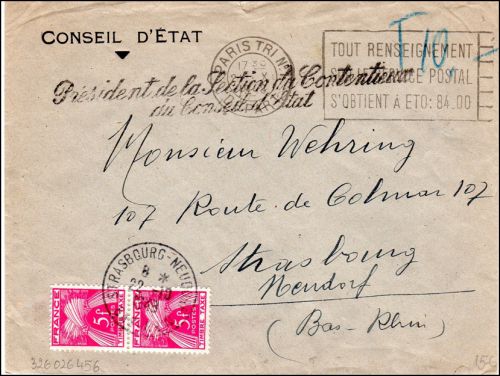 CONSEIL D'ÉTAT
PARIS TRI Nº
17 30
T 10
TOUT RENSEIGNEMENT
POSTAL
S'OBTIENT A ETO: 84.00
Président de la Section du Contentieux
du Conseil d'Etat
Monsieur Wehring
107 Route de Colmar 107
Strasbourg
Neudorf
(Bas-Rhin)
STRASBOURG-NEUD
8 *
22 19
FRANCE
5f
POSTES
TIMBRE TAXE
FRANCE
5f
POSTES
TIMBRE TAXE
326026456
156